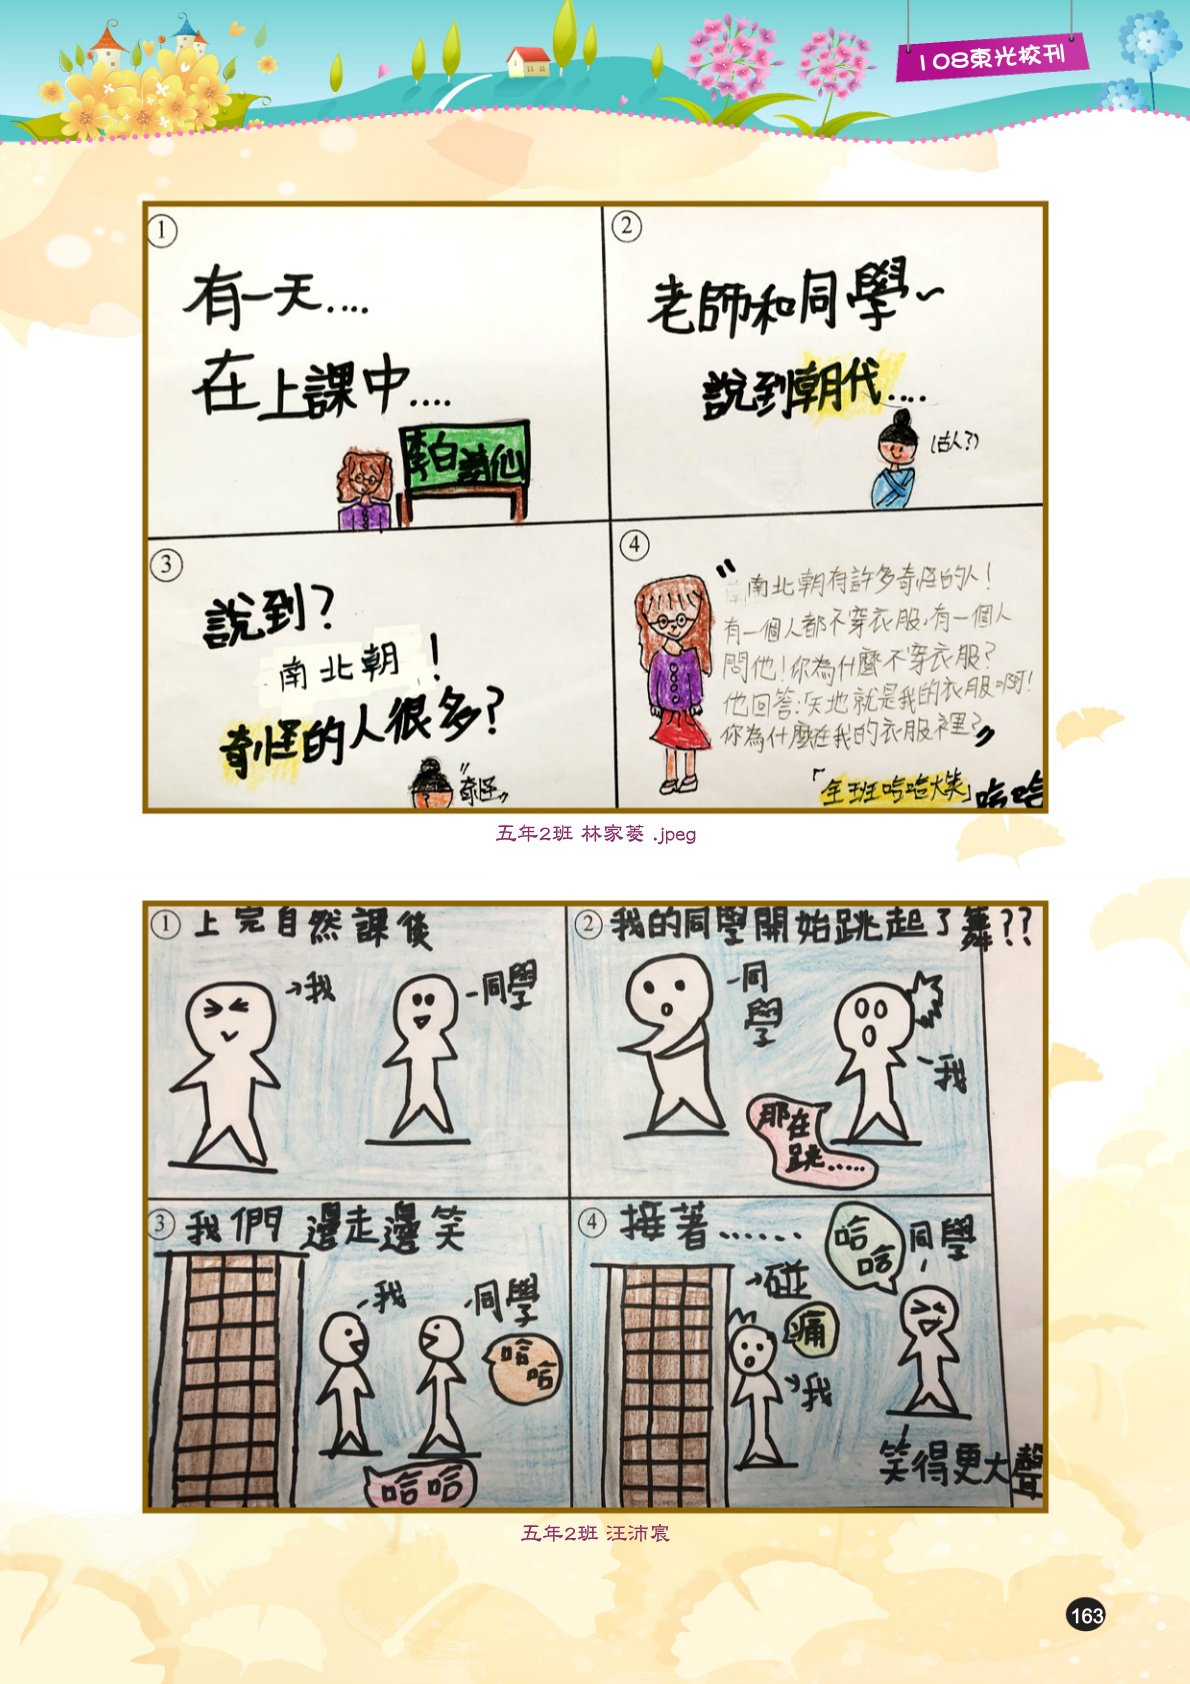 108東光校刊
1
有一天....
在上課中....
李白 詩仙
2
老師和同學~
說到朝代....
(古人?)
3
說到?
南北朝!
奇怪的人很多?
"奇怪"
4
"南北朝有許多奇怪的人!
有一個人都不穿衣服,有一個人
問他!你為什麼不穿衣服?
他回答:「天地就是我的衣服啊!
你為什麼在我的衣服裡?"
「全班哈哈大笑」哈哈
五年2班 林家菱 .jpeg
1 上完自然課後
我
同學
2 我的同學開始跳起了舞??
同學
我
那在跳.....
3 我們邊走邊笑
我
同學
哈哈
哈哈
4 接著......
碰
痛
我
哈哈
同學
笑得更大聲
五年2班 汪沛宸
163